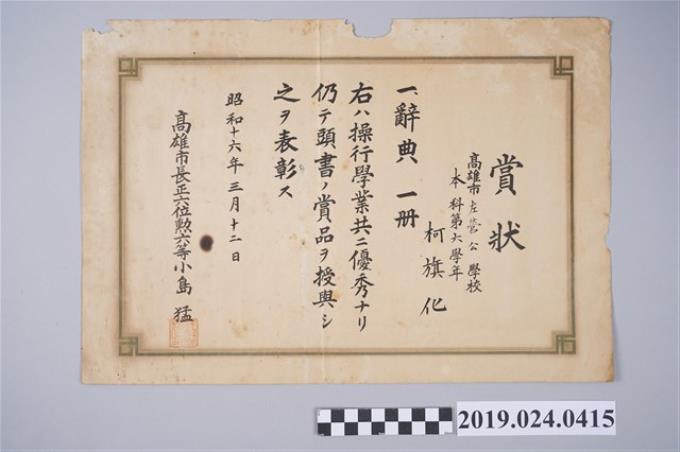 賞狀
高雄市左營公學校
本科第六學年
柯旗化
一、辭典 一册
右ハ操行學業共ニ優秀ナリ
仍テ頭書ノ賞品ヲ授與シ
之ヲ表彰ス
昭和十六年三月十二日
高雄市長正六位勲六等小島 猛
2019.024.0415